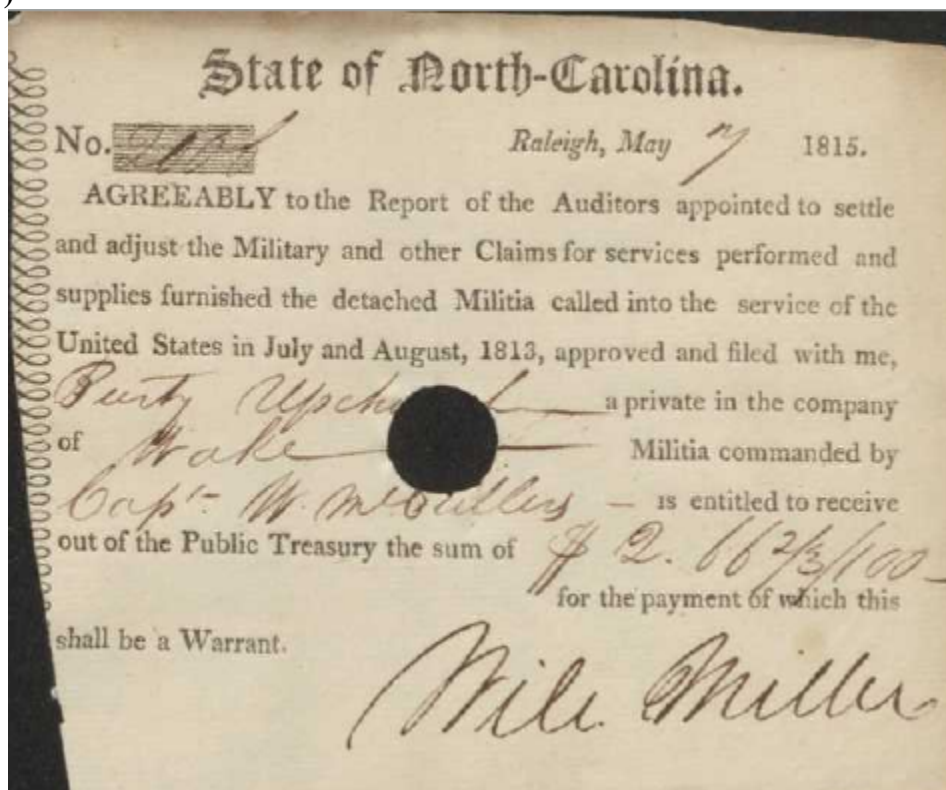 State of North-Carolina.
No.
Raleigh, May 7 1815.
AGREEABLY to the Report of the Auditors appointed to settle
and adjust the Military and other Claims for services performed and
supplies furnished the detached Militia called into the service of the
United States in July and August, 1813, approved and filed with me,
a private in the company
of Wake Militia commanded by
Capt- W. McCullers - is entitled to receive
out of the Public Treasury the sum of $ 2. 66 2/3/100 -
for the payment of which this
shall be a Warrant.
Will Miller